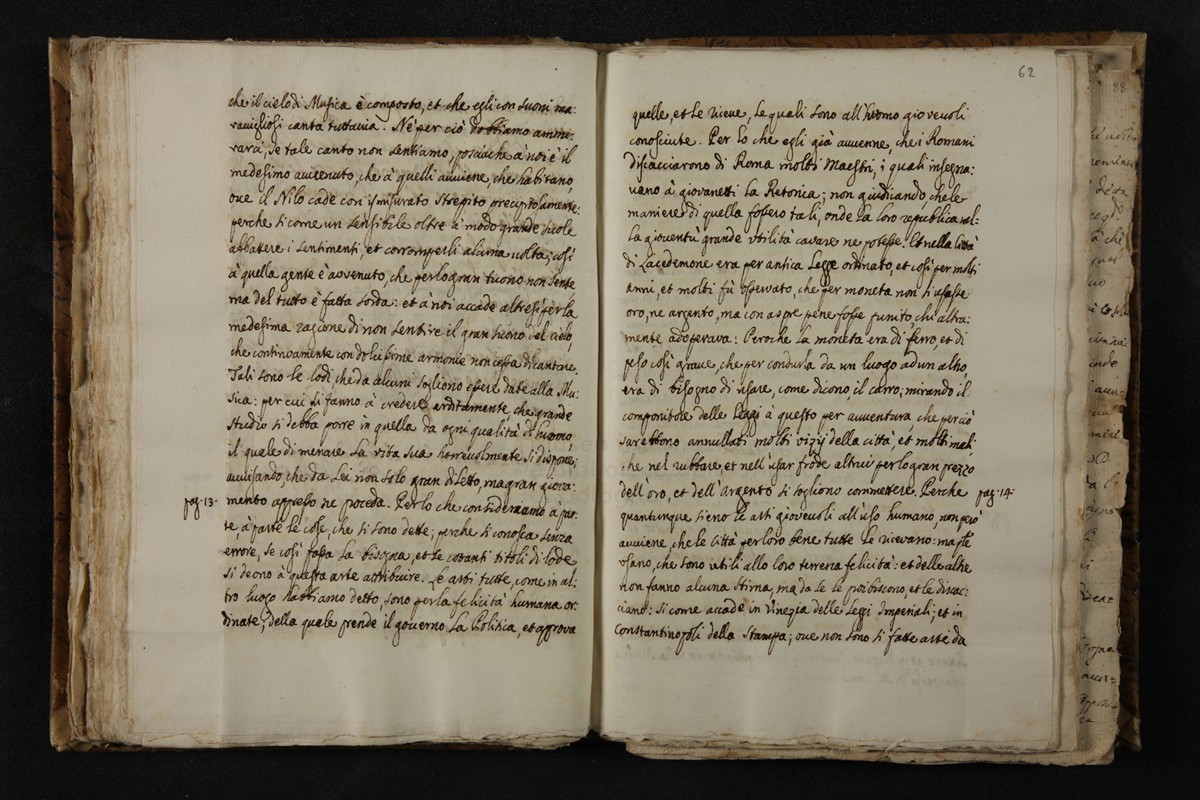 che il cielo di Musica è composto, et che egli con suoni ma:
ravigliosi canta tuttavia. Nè per ciò dobbiamo ammi:
rarci, se tale canto non sentiamo, posciache à noi è il
medesimo avvenuto, che à quelli avviene, che habitano,
ove il Nilo cade con ismisurato strepito precipitosamente:
perche si come un sensibile oltre à modo grande suole
abbattere i sentimenti, et corrompergli alcuna volta; così
à quella gente è avvenuto, che per lo gran tuono non sente
ma del tutto è fatta sorda: et à noi accade altresì per la
medesima ragione di non sentire il gran suono del cielo,
che continuamente con dolcissime armonie non cessa di cantare.
Tali sono le lodi, che da alcuni sogliono essere date alla Mu:
sica: per cui si fanno à credere arditamente, che grande
studio si debba porre in quella da ogni qualità d'huomo
il quale di menare la vita sua honorevolmente si dispone;
avvisando, che da lei non solo gran diletto, ma gran giova:
pag. 13. mento appresso ne proceda. Per lo che consideriamo à par:
te, à parte le cose, che si sono dette; perche si conosca senza
errore, se così fatta la bisogna, et se cotanti titoli di lode
si deono à questa arte attribuire. Le arti tutte, come in al:
tro luogo habbiamo detto, sono per la felicità humana or:
dinate, della quale prende il governo la Politica, et approva
62
quelle, et le riceve, le quali sono all'huomo giovevoli
conosciute. Per lo che egli già avvenne, che i Romani
discacciarono di Roma molti Maestri, i quali insegna:
vano à giovanetti la Retorica; non giudicando che le
maniere di quella fossero tali, onde la loro republica nel:
la gioventù grande utilità cavare ne potesse. Et nella Città
di Lacedemone era per antica Legge ordinato, et così per molti
anni, et molti fù osservato, che per moneta non si usasse
oro, ne argento, ma con aspre pene fosse punito chi altra:
mente adoperava: Peroche la moneta era di ferro, et di
peso così grave, che per condurla da un luogo ad un altro,
era di bisogno di usare, come dicono, il carro; mirando il
componitore delle Leggi à questo per avventura, che perciò
sarebbono annullati molti vizij della città, et molti mali
che nel rubbare et nell'usar frode altrui per lo gran prezzo
dell'oro, et dell'Argento si sogliono commettere. Perche pag. 14.
quantunque sieno le arti giovevoli all'uso humano, non però
avviene, che le Città per loro bene tutte le ricevano: ma s'e
usano, che sono utili allo loro terrena felicità: et delle altre
non fanno alcuna stima, ma da se le proibiscono, et le discac:
ciano: si come accade in Vinezia delle Leggi Imperiali; et in
Constantinopoli della Stampa; ove non sono si fatte arti da